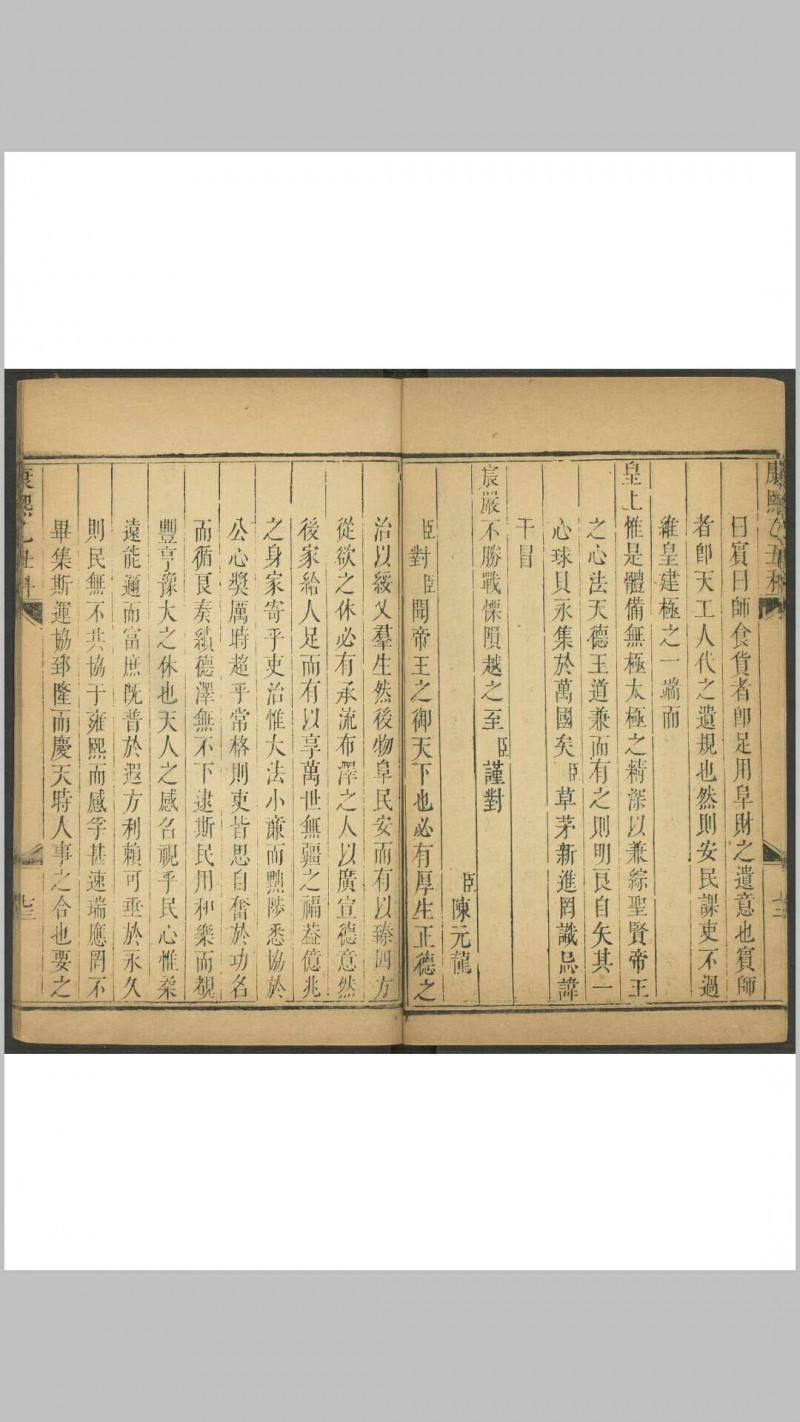 康熙乙丑科
七三
曰賓曰師食貨者卽足用阜財之遺意也賓師
者卽天工人代之遺規也然則安民課吏不過
維皇建極之一端而
皇上惟是體備無極太極之精深以兼綜聖賢帝王
之心法天德王道兼而有之則明良自矢其一
心球貝永集於萬國矣臣草茅新進罔識忌諱
干冒
宸嚴不勝戰慄隕越之至臣謹對
臣陳元龍
臣對臣聞帝王之御天下也必有厚生正德之
治以綏乂羣生然後物阜民安而有以臻四方
從欲之休必有承流布澤之人以廣宣德意然
後家給人足而有以享萬世無疆之福葢億兆
之身家寄乎吏治惟大法小亷而黜陟悉協於
公心奬厲時超乎常格則吏皆思自奮於功名
而循良奏績德澤無不下逮斯民用和樂而覩
豐亨豫大之休也天人之感召視乎民心惟柔
遠能邇而富庶旣普於遐方利賴可垂於永久
則民無不共協于雍熙而感孚甚速瑞應罔不
畢集斯運協郅隆而慶天時人事之合也要之
康熙乙丑科
七三